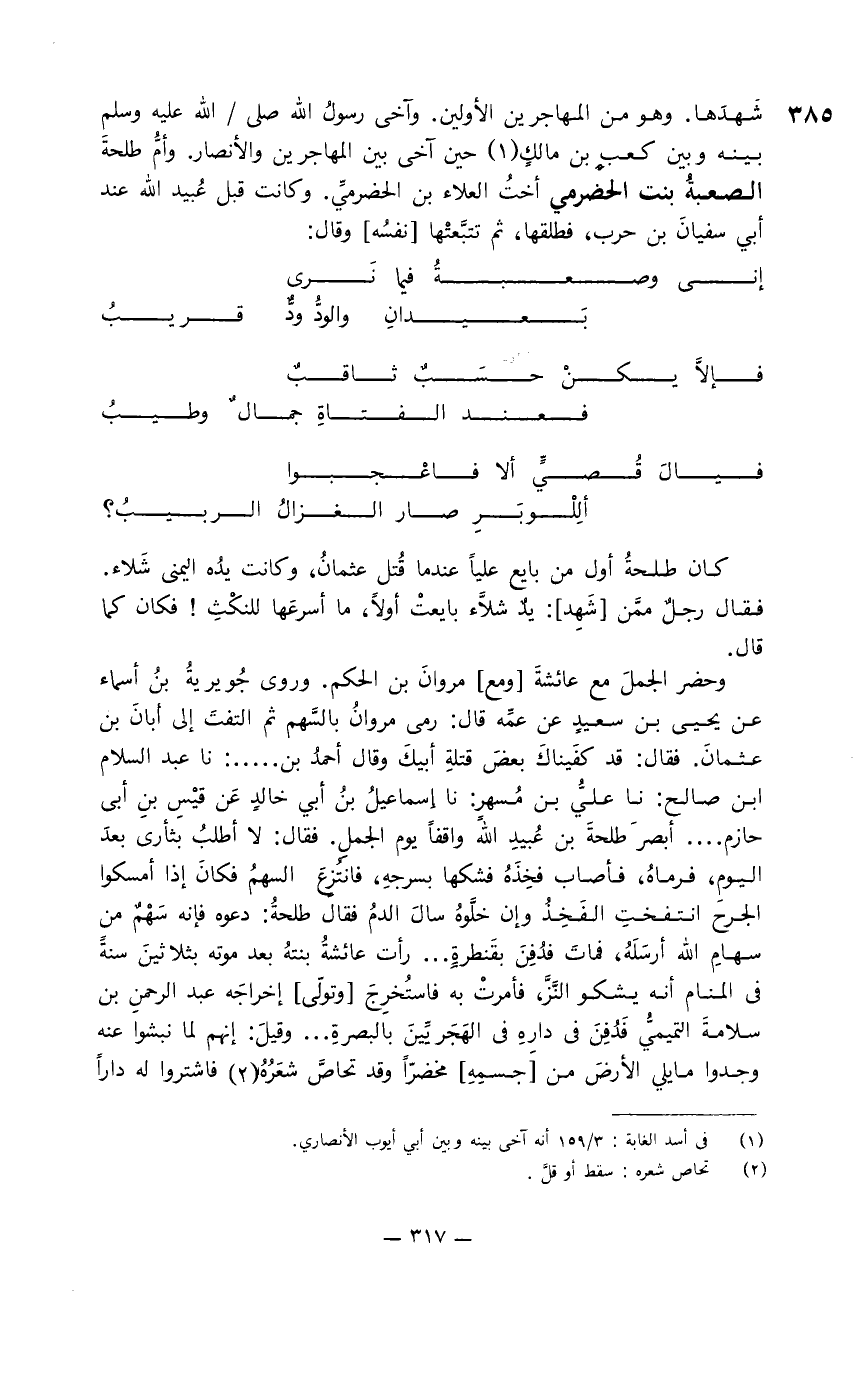 ٣٨٥ شَهِدَها. وهو من المهاجرين الأولين. وآخى رسولُ الله صلى / الله عليه وسلم
بينه وبين كعبِ بن مالكٍ(١) حين آخى بين المهاجرين والأنصار. وأمُّ طلحةَ
الصعبةُ بنت الحضرمي أختُ العلاء بن الحضرميِّ. وكانت قبل عُبيد الله عند
أبي سفيانَ بن حرب، فطلقها، ثم تتبَّعتْها [نفسُه] وقال:
إنى وصعبةُ فيما نَرى
بَعيدانِ والودُّ ودٌّ قريبُ
فإلاَّ يكنْ حَسَبٌ ثاقبٌ
فعند الفتاةِ جمالٌ وطيبُ
فيالَ قُصيٍّ ألا فاعْجبوا
أللْوبَرِ صار الغزالُ الربيبُ؟
كان طلحةُ أول من بايع علياً عندما قُتل عثمانُ، وكانت يدُه اليمنى شَلاء.
فقال رجلٌ ممَّن [شَهِد]: يدٌ شلاَّء بايعتْ أولاً، ما أسرعَها للنكْثِ ! فكان كما
قال.
وحضر الجملَ مع عائشةَ [ومع] مروانَ بن الحكم. وروى جُويريةُ بنُ أسماء
عن يحيى بن سعيدٍ عن عمِّه قال: رمى مروانُ بالسَّهم ثم التفتَ إلى أبانَ بن
عثمانَ. فقال: قد كفَيناكَ بعضَ قتلةِ أبيكَ وقال أحمدُ بن.....: نا عبد السلام
ابن صالح: نا عليُّ بن مُسهرٍ: نا إسماعيلُ بنُ أبي خالدٍ عَن قيْسِ بنِ أبى
حازم.... أبصرَ طلحةَ بن عُبيدِ الله واقفاً يوم الجملِ. فقال: لا أطلبُ بثأرى بعدَ
اليوم، فرماهُ، فأصاب فخِذَهُ فشكها بسرجهِ، فانتُزِعَ السهمُ فكانَ إذا أمسكوا
الجرحَ انتفختِ الفَخِذُ وإن خلَّوهُ سالَ الدمُ فقال طلحةُ: دعوه فإنه سَهْمٌ من
سهامِ الله أرسَلَهُ، فماتَ فدُفِنَ بقَنطرةٍ... رأت عائشةُ بنتهُ بعد موته بثلاثينَ سنةً
فى المنام أنه يشكو النَّزَّ، فأمرتْ به فاستُخرِجَ [وتولّى] إخراجَه عبد الرحمنِ بن
سلامةَ التميميُّ فَدُفِنَ فى دارهِ فى الهَجَريِّينَ بالبصرةِ... وقيلَ: إنهم لما نبشوا عنه
وجدوا مايلي الأرضَ من [جسمِهِ] مخضرّاً وقد تحاصَّ شعَرُهُ(٢) فاشتروا له داراً
(١) فى أسد الغابة : ١٥٩/٣ أنه آخى بينه وبين أبي أيوب الأنصاري.
(٢) تحاص شعره : سقط أو قلَّ .
— ٣١٧ —